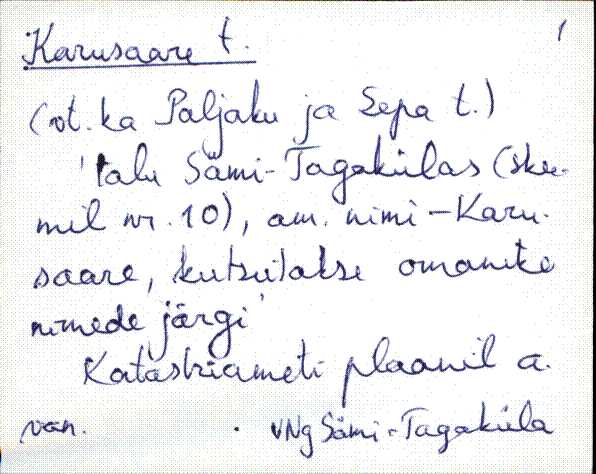 Karusaare t. 1
(vt. ka Paljaku ja Sepa t.)
'talu Sämi-Tagakülas (skee-
mil nr. 10), am. nimi – Karu-
saare, kutsutakse omanike
nimede järgi'
Katastriameti plaanil a.
VNg Sämi-Tagaküla